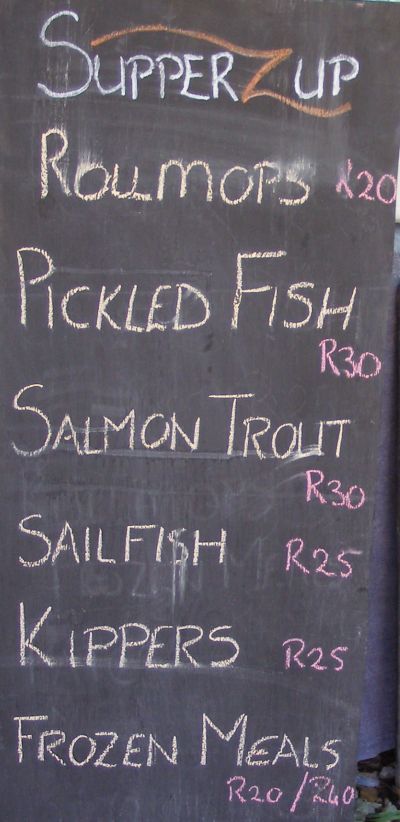 SUPPER Z UP
ROLLMOPS R20
PICKLED FISH
R30
SALMON TROUT
R30
SAILFISH R25
KIPPERS R25
FROZEN MEALS
R20/R40